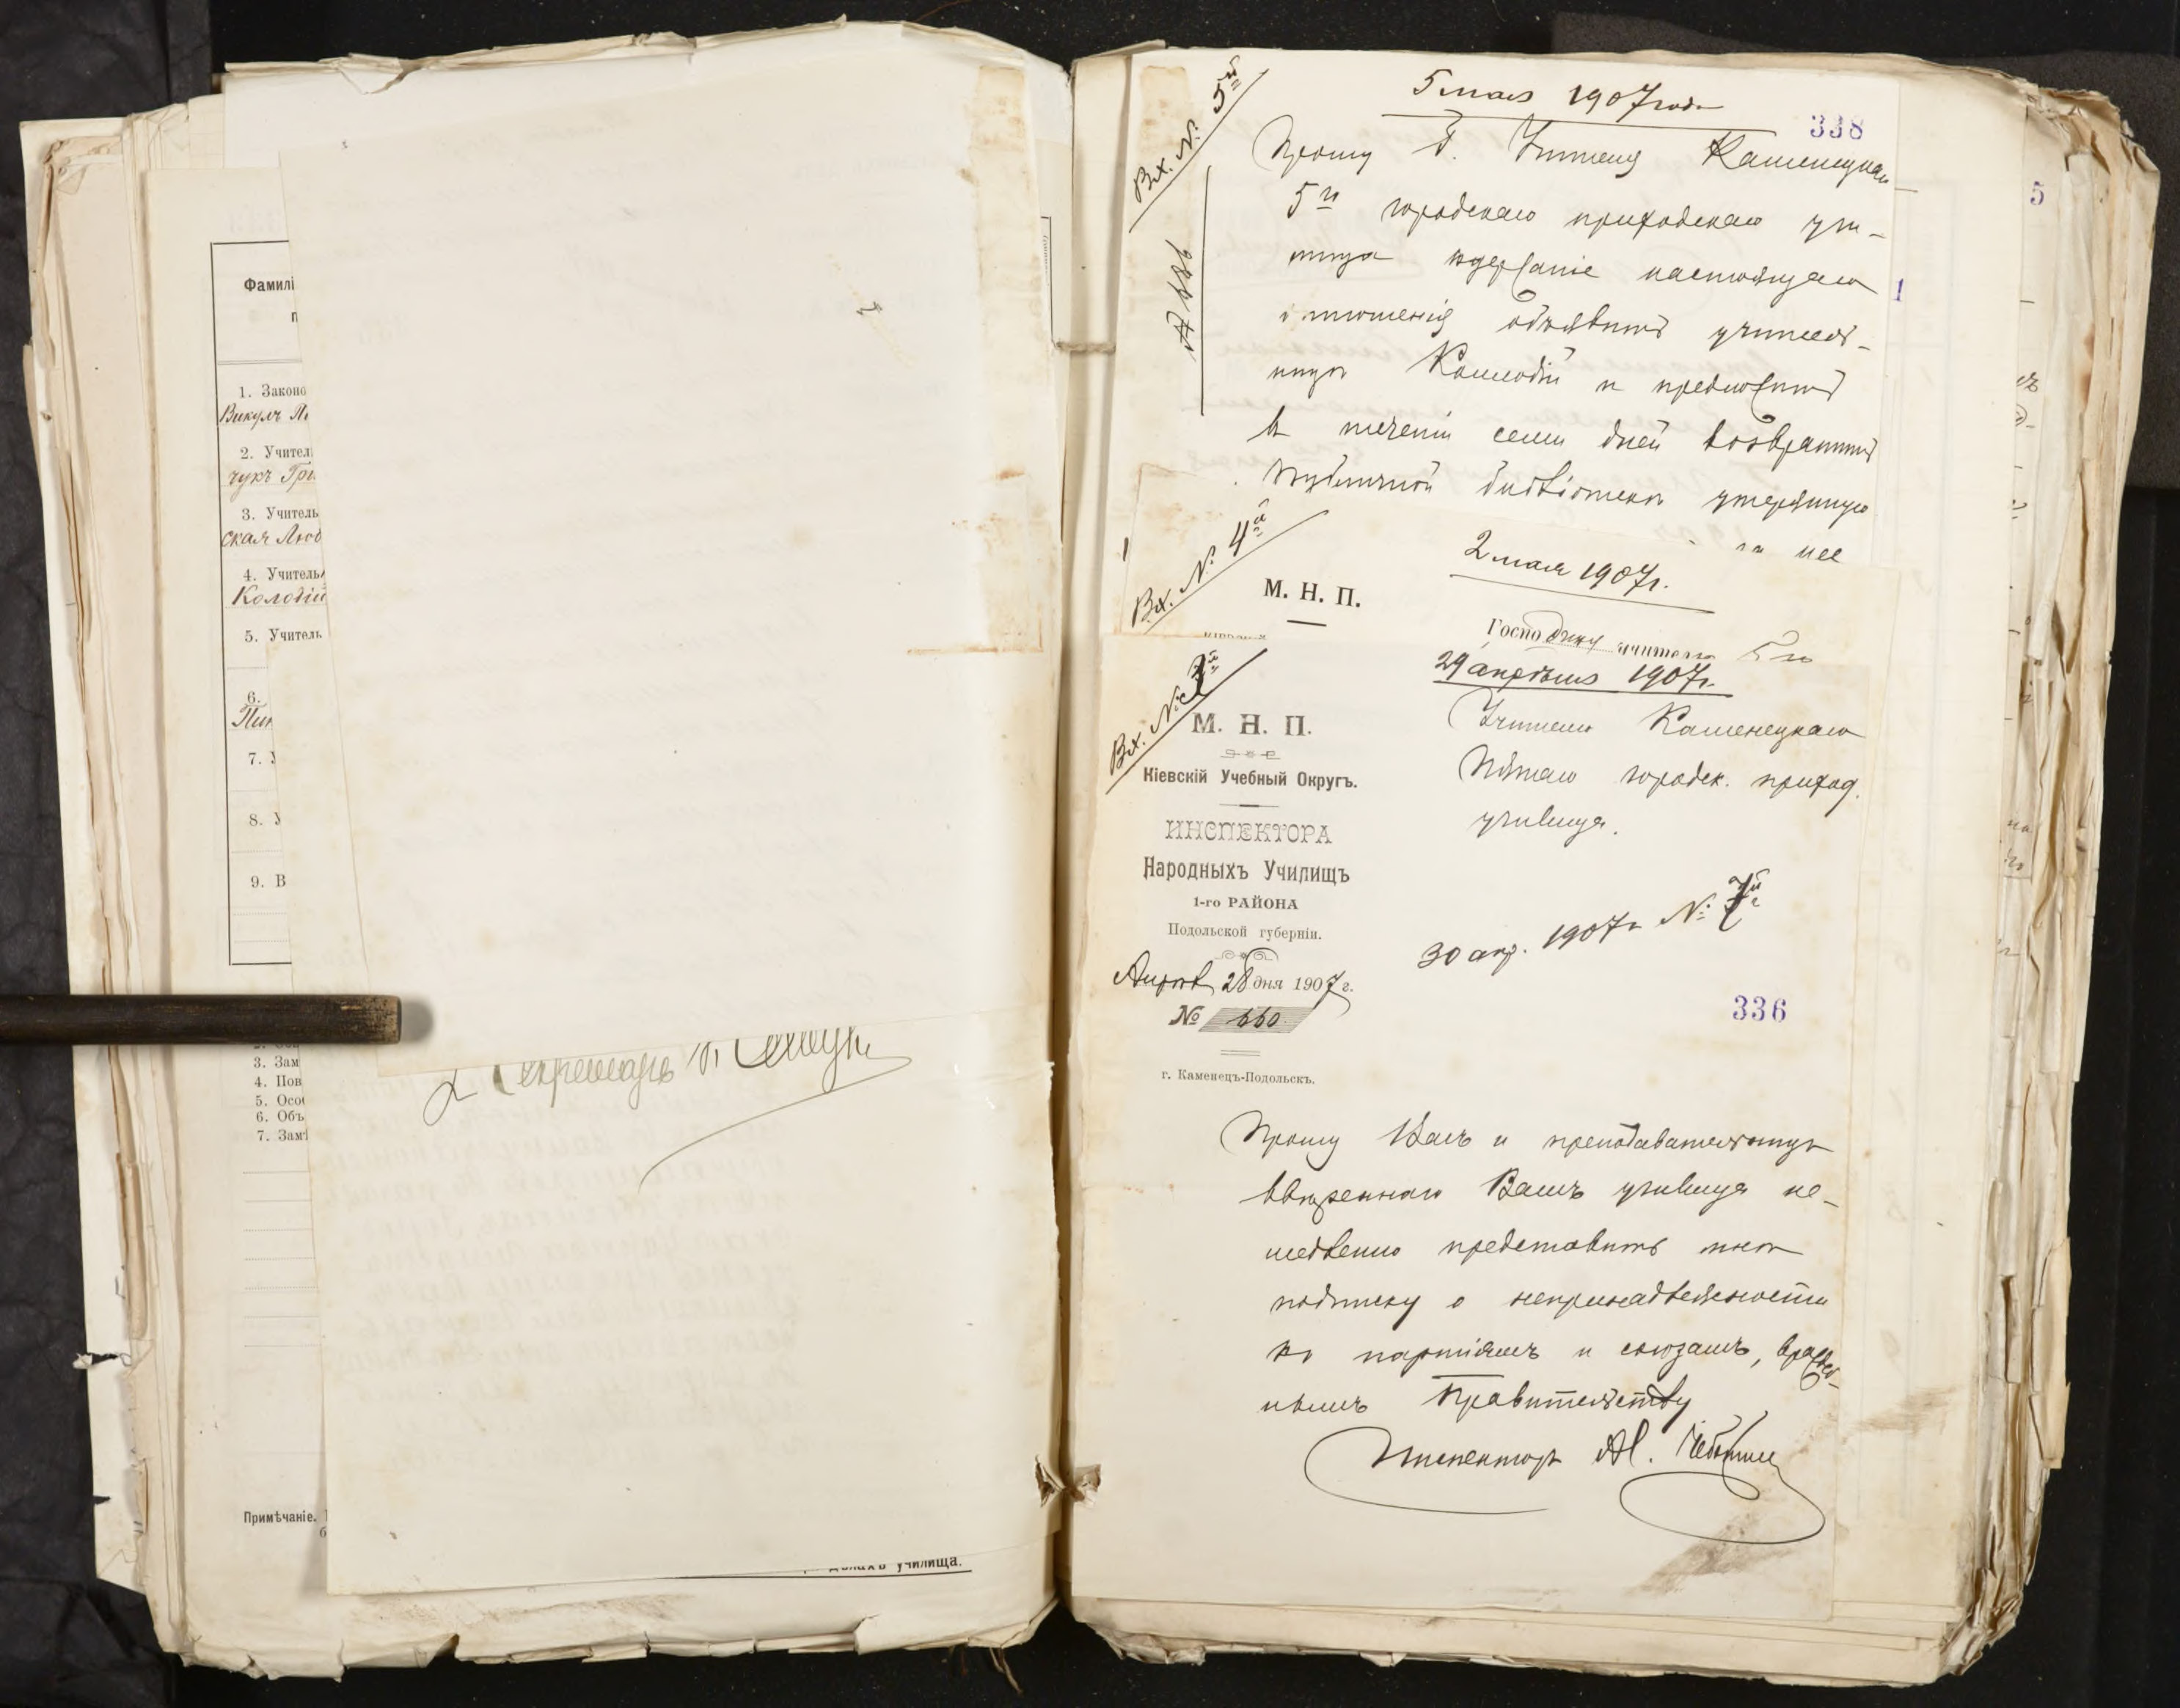 Фамилі
п
1. Законо
Викулъ
2. Учител
чукъ Гри
3. Учитель
ская Люд
4. Учитель
Колодій
5. Учитель
6.
7. У
8. У
9. В
3. Зам
4. Пов
5. Осо
6. Объ
7. Зам
Примѣчаніе.
училища.
Секретарь
Вх. № 5й
5 мая 1907 года
338
Прошу Г. Учителя Каменецкаго
5го городскаго приходскаго учи-
лища содержаніе настоящаго
отношенія объявить учитель-
ницѣ Колодій и предложить
въ теченіи семи дней возвратить
публичной библіотекѣ утерянную
нее
5
1
Вх. № 4й
2 мая 1907г.
М. Н. П.
Господину учителю 5го
Вх. № 3й
29 апрѣля 1907г.
М. Н. П.
Кіевскій Учебный Округъ.
ИНСПЕКТОРА
Народныхъ Училищъ
1-го РАЙОНА
Подольской губерніи.
Апрѣля 28 дня 1907 г.
№ 660
г. Каменецъ-Подольскъ.
Учителю Каменецкаго
Пятаго городск. приход.
училища.
30 апр. 1907г №
336
Прошу Васъ и преподавательницъ
ввѣреннаго Вамъ училища не-
медленно представить мнѣ
подписку о непринадлежности
къ партіямъ и союзамъ, враждеб-
нымъ Правительству
Инспекторъ